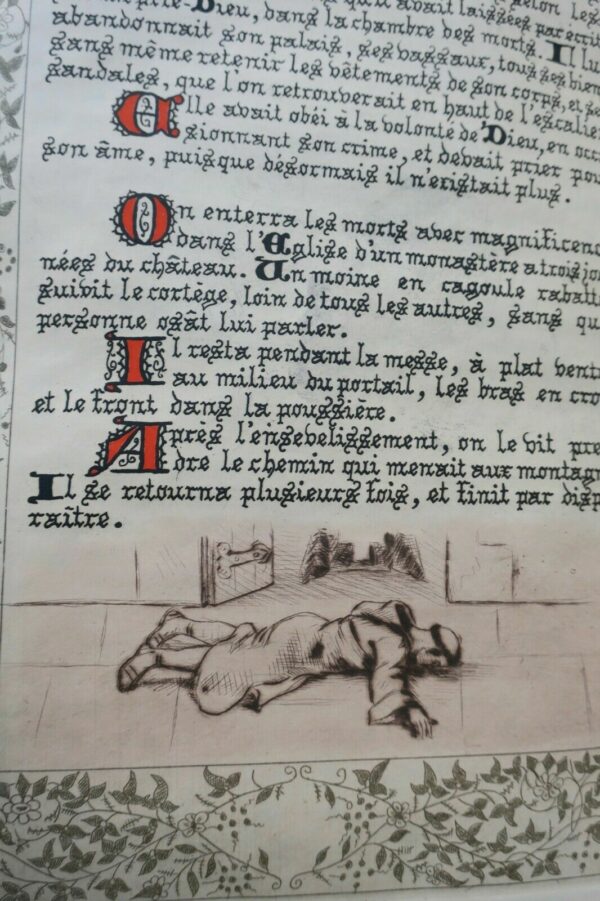 selon les
avait laissées par écrit
prie-Dieu, dans la chambre des morts. Il lu
abandonnait son palais, ses vassaux, tous ses bien
sans même retenir les vêtements de son corps, et se
sandales, que l'on retrouverait en haut de l'escalie
Elle avait obéi à la volonté de Dieu, en occ
sionnant son crime, et devait prier pou
son âme, puisque désormais il n'existait plus.
On enterra les morts avec magnificenc
dans l'Eglise d'un monastère à trois jo
nées du château. Un moine en cagoule rabatt
suivit le cortège, loin de tous les autres, sans qu
personne osât lui parler.
Il resta pendant la messe, à plat ventr
au milieu du portail, les bras en cro
et le front dans la poussière.
Après l'ensevelissement, on le vit pre
dre le chemin qui menait aux montagn
Il se retourna plusieurs fois, et finit par disp
raître.